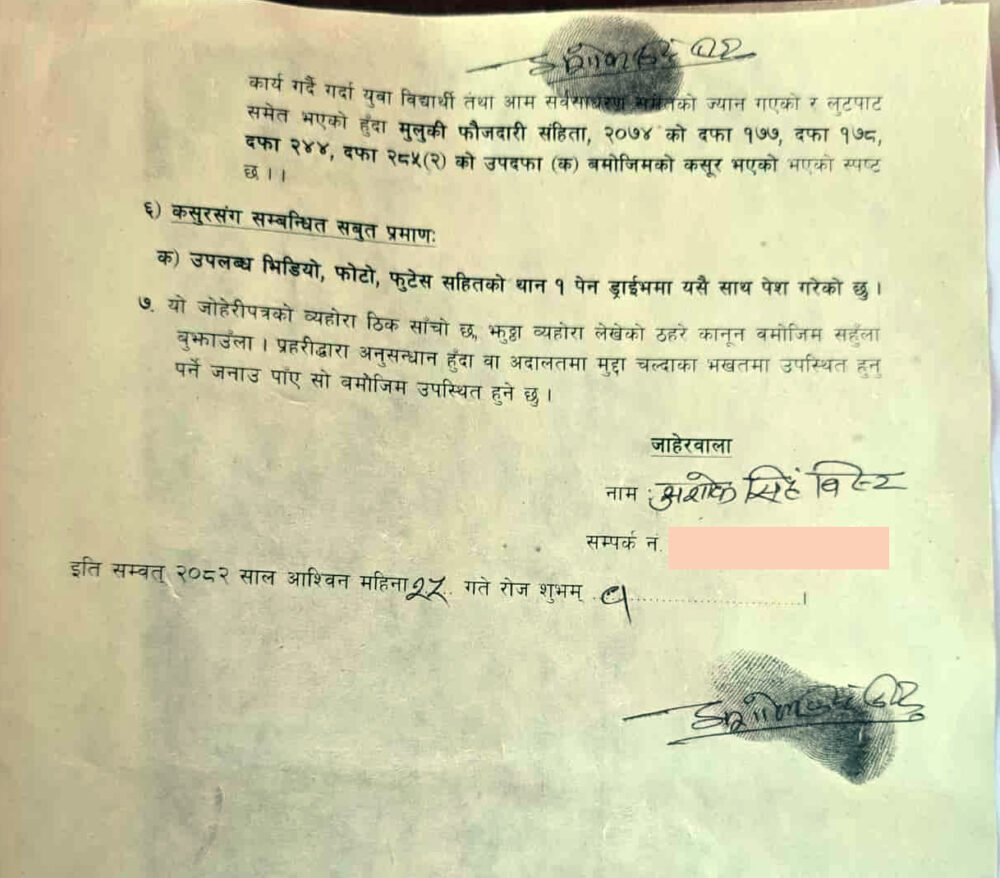 कार्य गर्दै गर्दा युवा विद्यार्थी तथा आम सर्वसाधरण समेतको ज्यान गएको र लुटपाट
समेत भएको हुँदा मुलुकी फौजदारी संहिता, २०७४ को दफा १७७, दफा १७८,
दफा २४४, दफा २८५(२) को उपदफा (क) बमोजिमको कसूर भएको भएको स्पष्ट
छ ।।
६) कसुरसंग सम्बन्धित सबुत प्रमाणः
क) उपलब्ध भिडियो, फोटो, फुटेस सहितको थान १ पेन ड्राईभमा यसै साथ पेश गरेको छु ।
७. यो जोहेरीपत्रको व्यहोरा ठिक साँचो छ, झुठ्ठा व्यहोरा लेखेको ठहरे कानून बमोजिम सहुँला
बुझाउँला । प्रहरीद्वारा अनुसन्धान हुँदा वा अदालतमा मुद्दा चल्दाका भखतमा उपस्थित हुनु
पर्ने जनाउ पाए सो बमोजिम उपस्थित हुने छु ।
जाहेरवाला
नाम : अशोक सिहं विस्ट
सम्पर्क नं.
इति सम्वत् २०८२ साल आश्विन महिना .. गते रोज शुभम् . १ ...................।